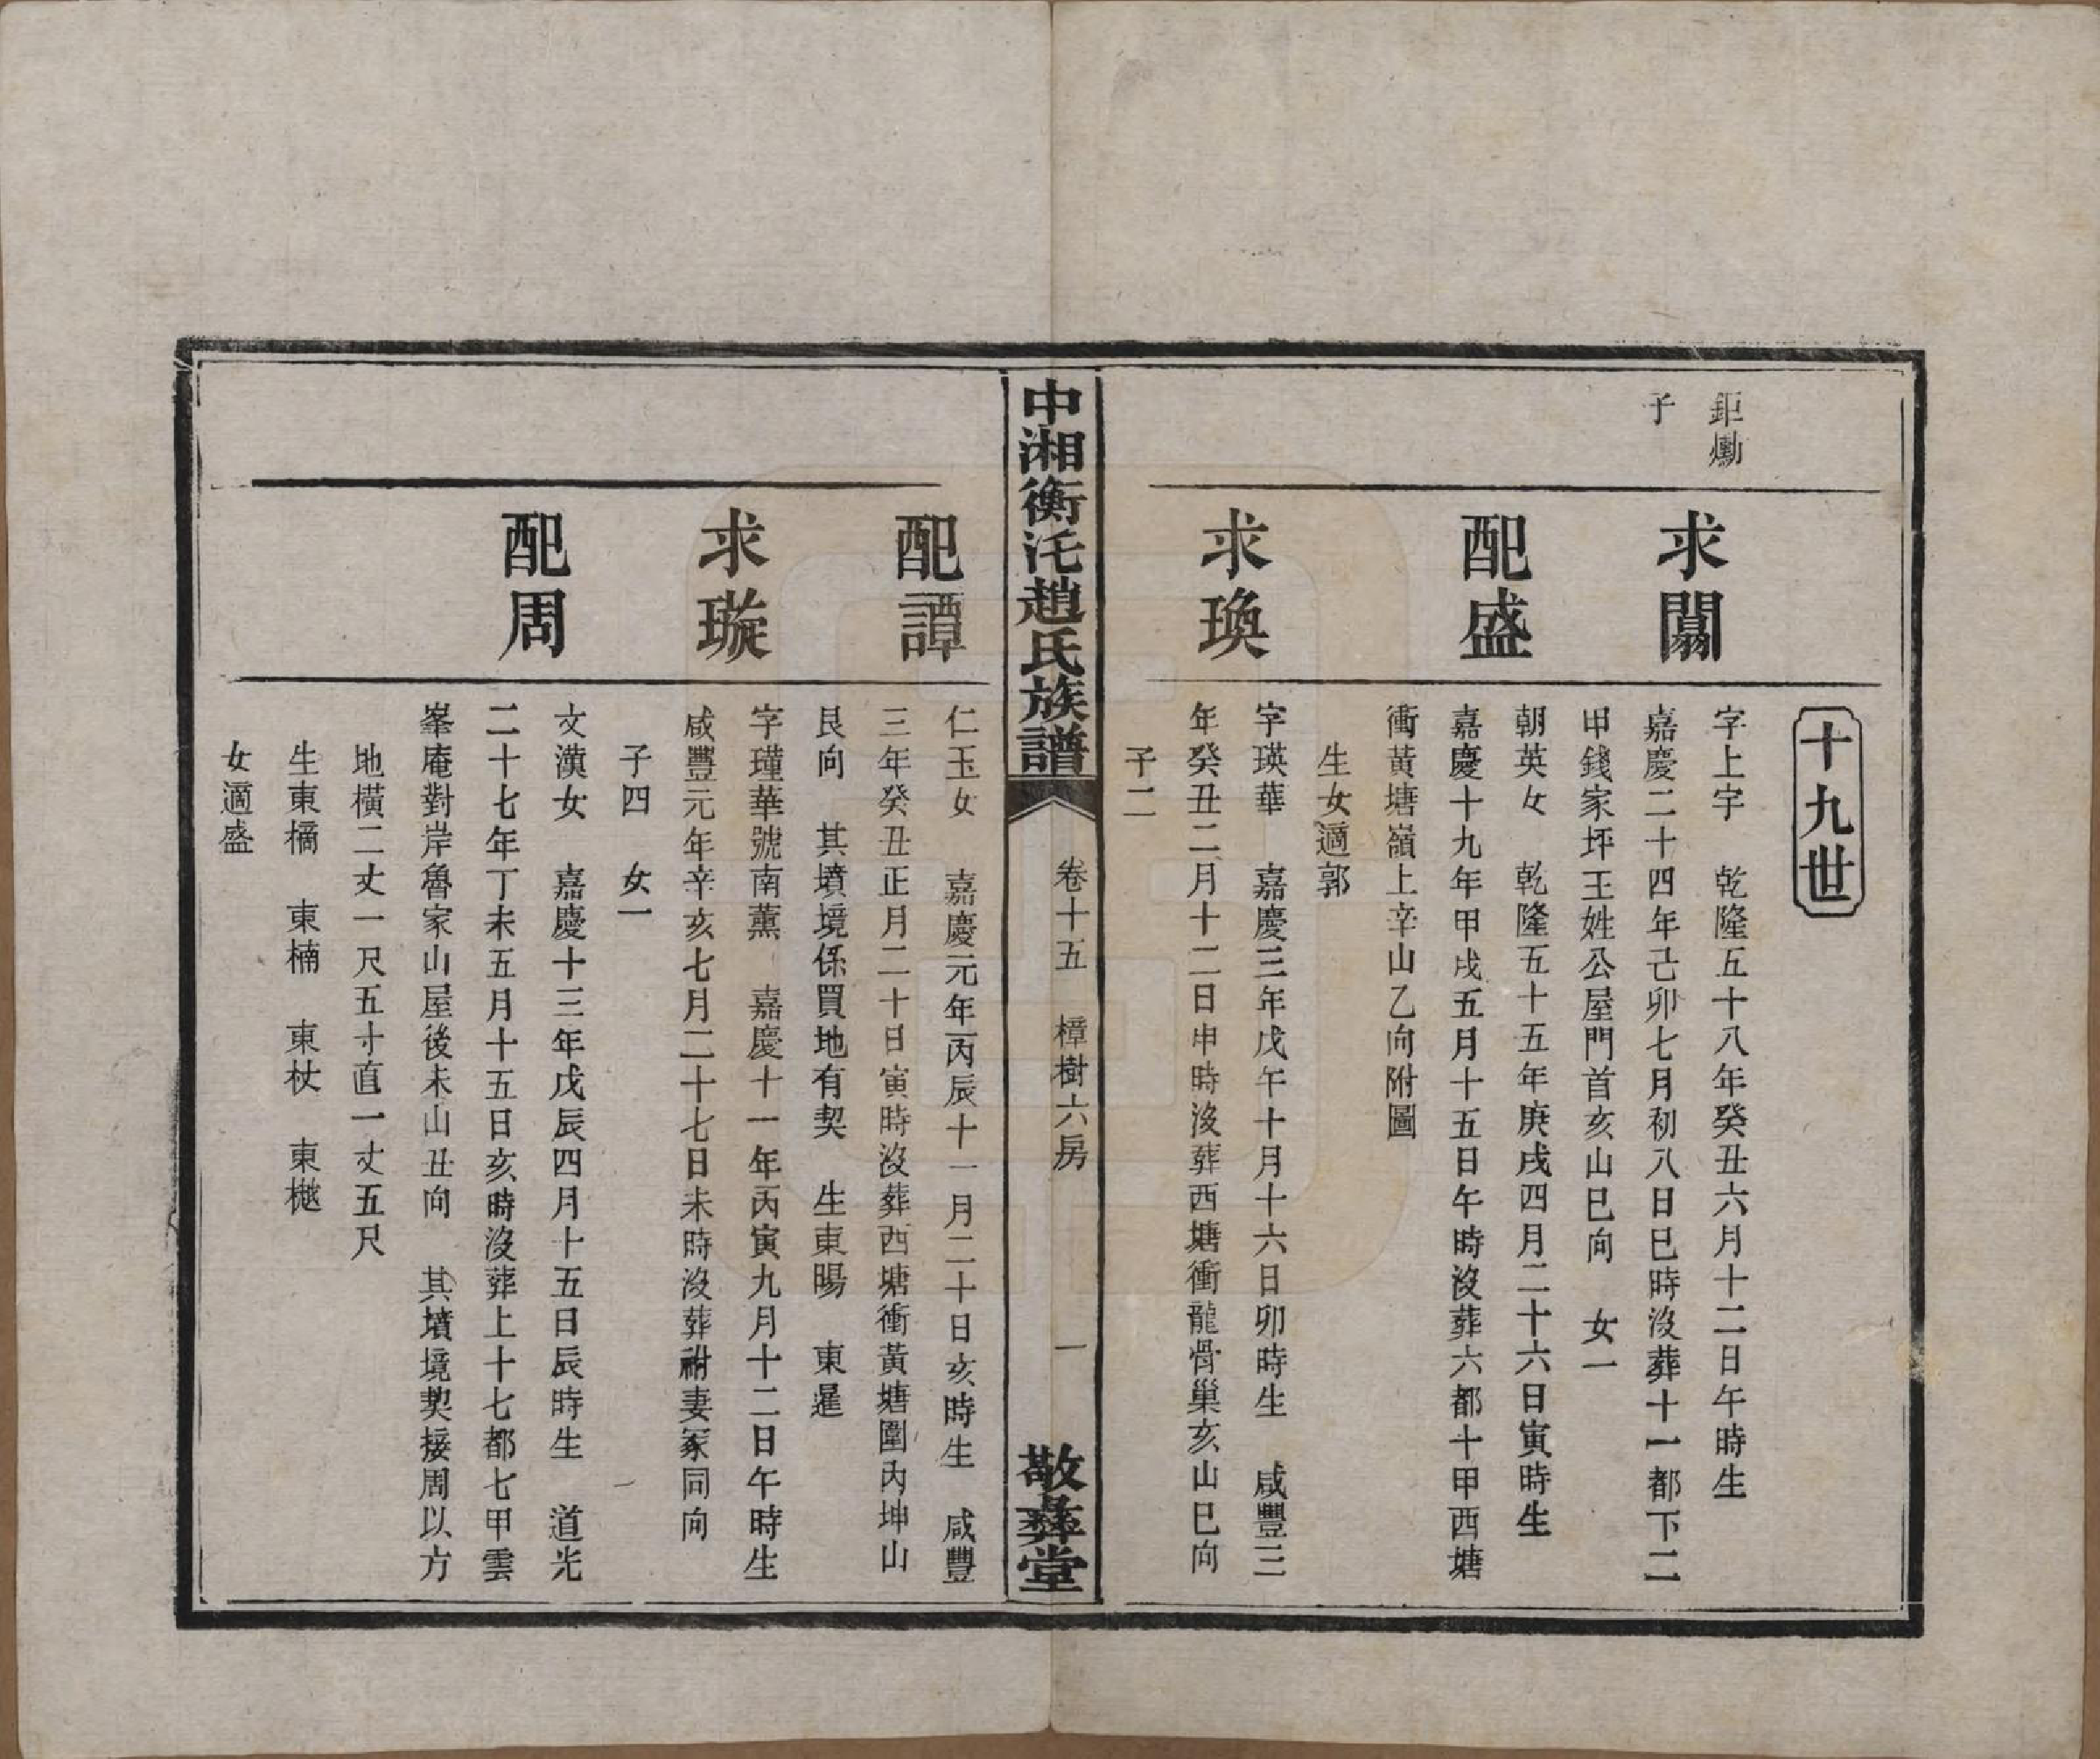 十九世
鉅勷
子
求闒
字上宇　乾隆五十八年癸丑六月十二日午時生
嘉慶二十四年己卯七月初八日巳時沒葬十一都下二
甲錢家坪王姓公屋門首亥山巳向　女一
配盛
朝英女　乾隆五十五年庚戌四月二十六日寅時生
嘉慶十九年甲戌五月十五日午時沒葬六都十甲西塘
衝黃塘嶺上辛山乙向附圖
生女適郭
求瑍
字瑛華　嘉慶三年戊午十月十六日卯時生　咸豐三
年癸丑二月十二日申時沒葬西塘衝龍骨巢亥山巳向
子二
中湘衡汑趙氏族譜
卷十五　樟樹六房
一
敬彝堂
配譚
仁玉女　嘉慶元年丙辰十一月二十日亥時生　咸豐
三年癸丑正月二十日寅時沒葬西塘衝黃塘圍內坤山
艮向　其墳境係買地有契　生東暘　東暹
求璇
字瑾華號南薰　嘉慶十一年丙寅九月十二日午時生
咸豐元年辛亥七月二十七日未時沒葬祔妻冢同向
子四　女一
配周
文漢女　嘉慶十三年戊辰四月十五日辰時生　道光
二十七年丁未五月十五日亥時沒葬上十七都七甲雲
峯庵對岸魯家山屋後未山丑向　其墳境契接周以方
地橫二丈一尺五寸直一丈五尺
生東橘　東楠　東杖　東樾
女適盛